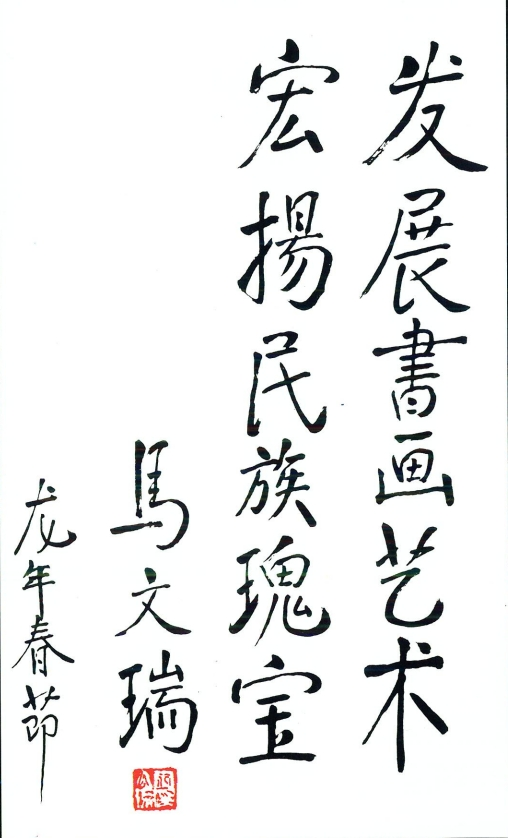 发展書画艺术
宏揚民族瑰宝
馬文瑞
龙年春节